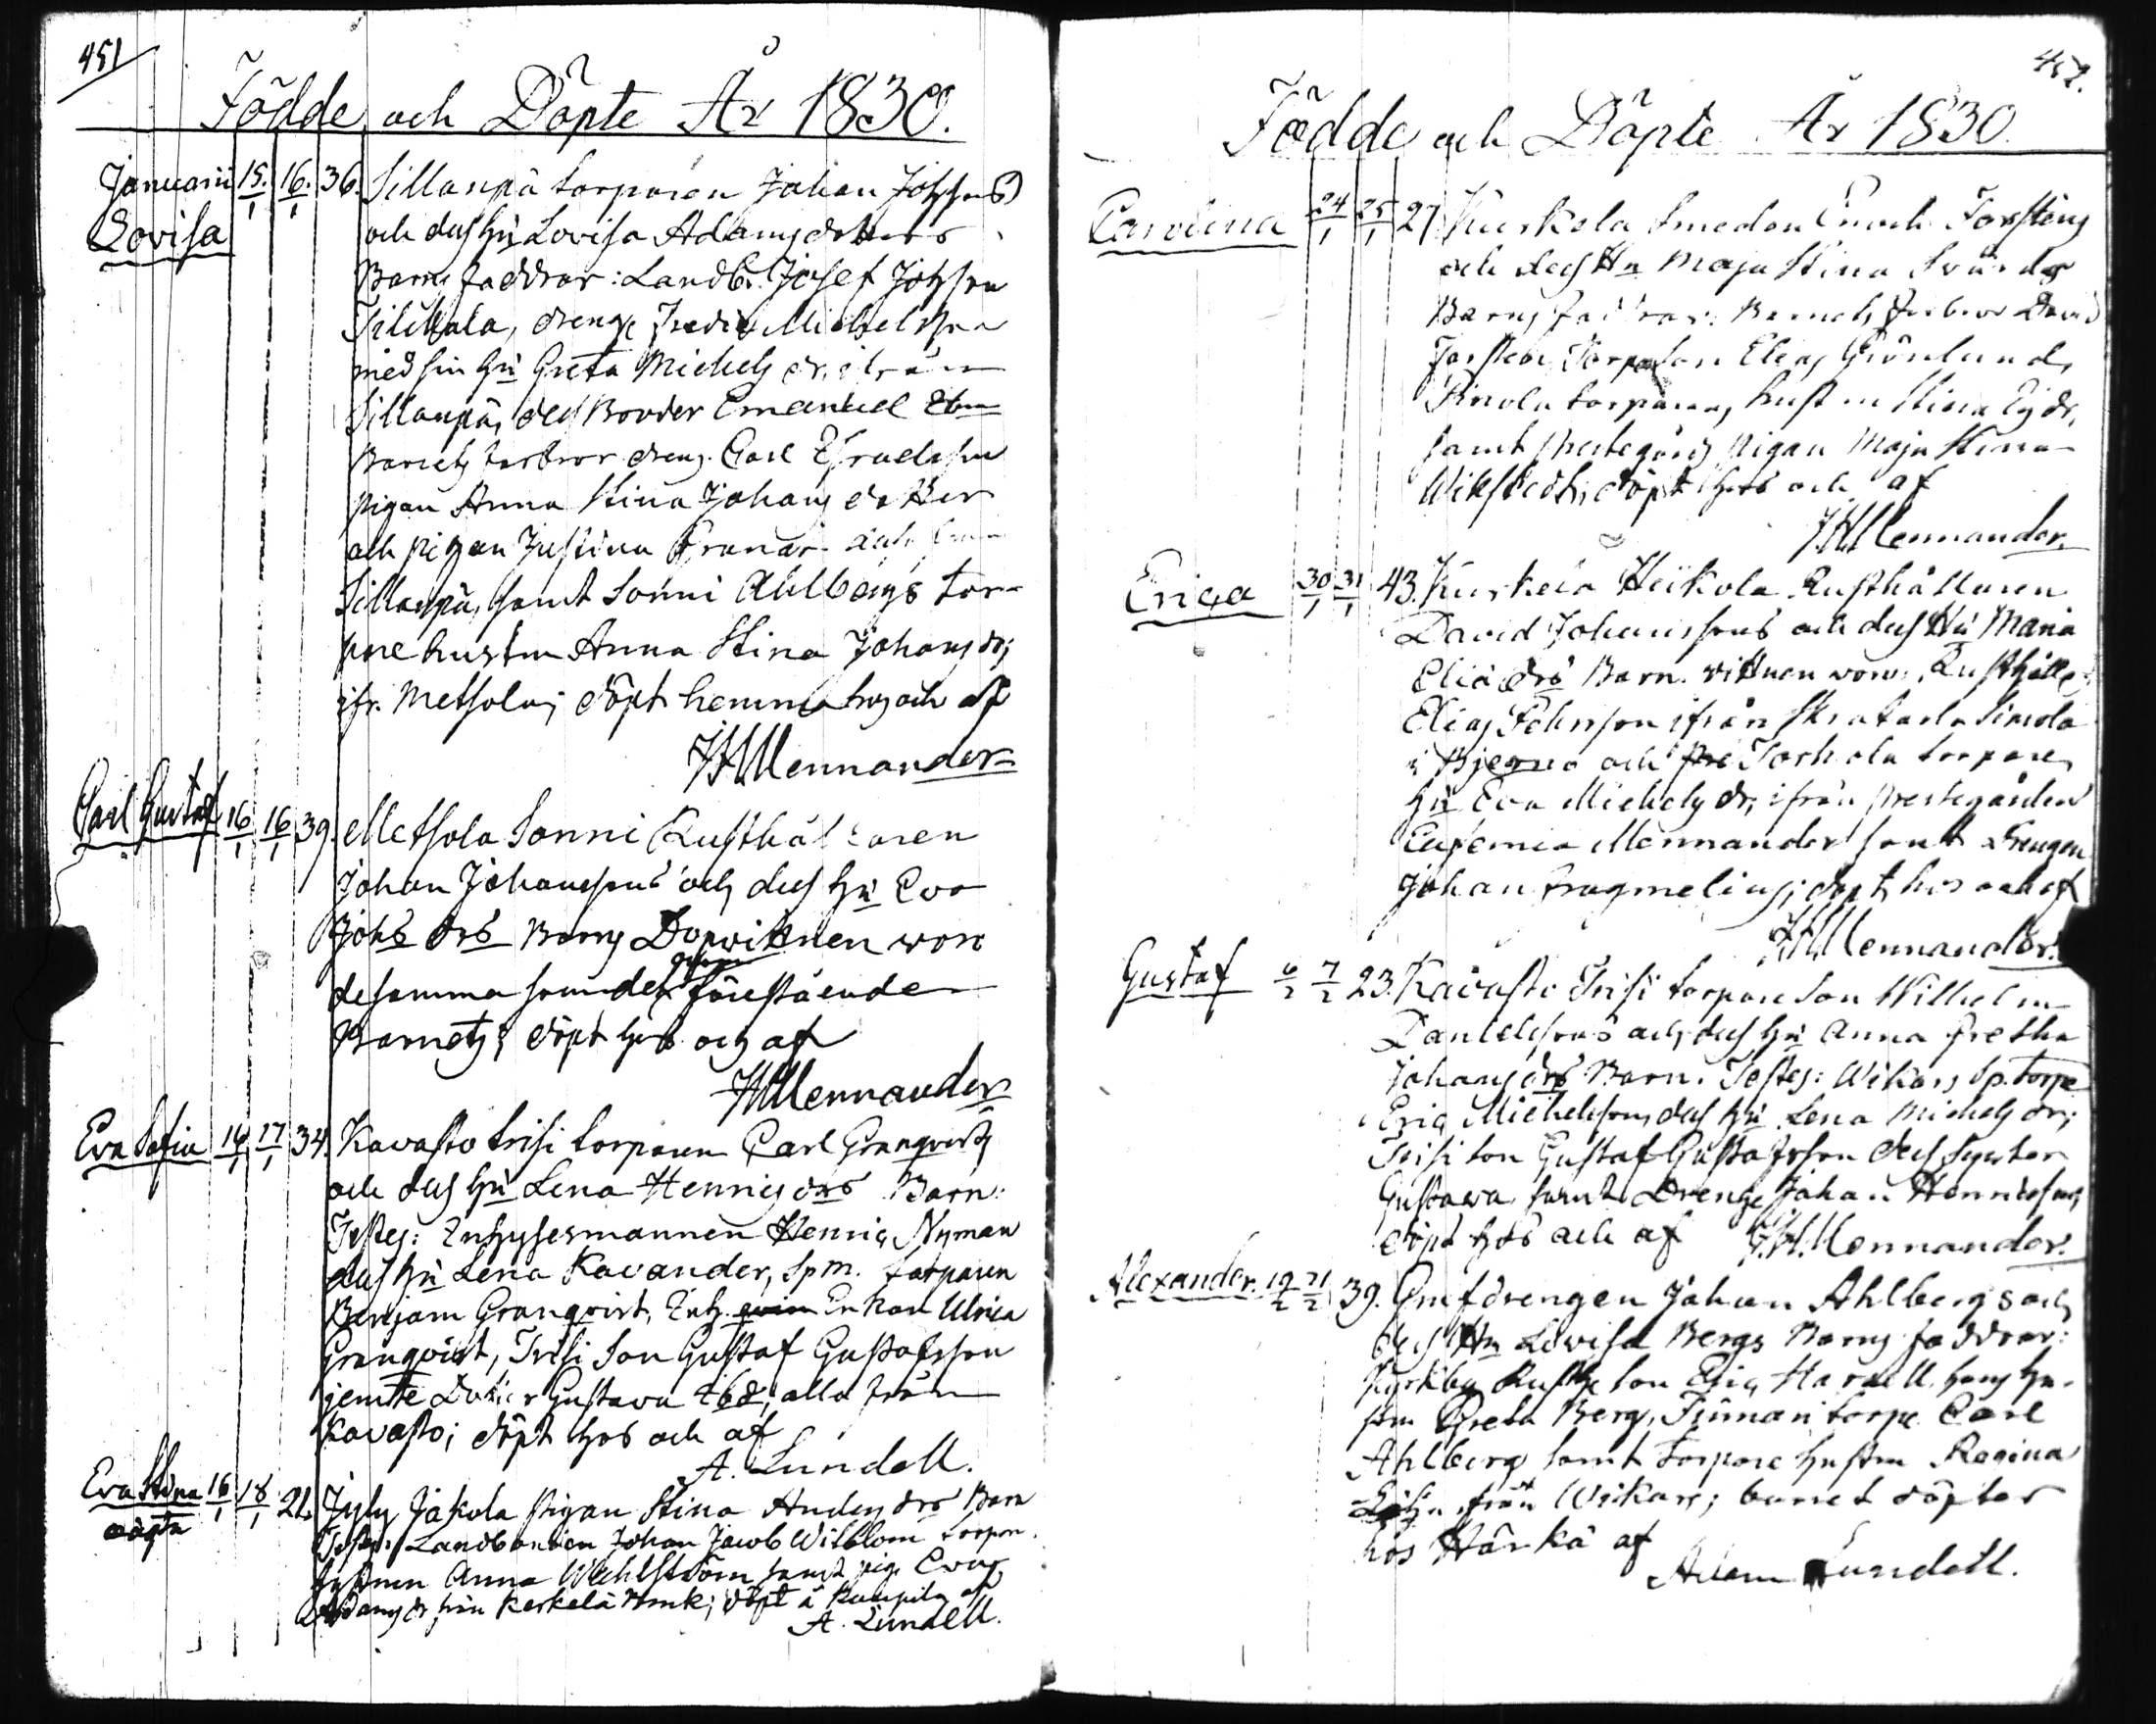 451
Födde och Döpte År 1830.
Januarii 15/1 16/1 36. Sillanpä torparen Johan Johssons
Lovisa och dess Hu Lovisa Adamsdotters
Barns faddrar: Landb. Josef Johsson
drenge Fredric Michelsson
med sin Hu Greta Michels dr, ifrån
Sillanpä, dess Broder Emanuel
Barnets farbror dreng. Carl Esraelsson
pigan Anna Stina Johans dotter
och pigan Justina
Sillanpä, samt Sonni Ahlbergs tor-
pare hustru Anna Stina Johans dr;
ifr. Metsola; döpt hemma hos och af
JHMennander
Carl Gustaf 16/1 16/1 39. Metsola Sonni Rusthållaren
Johan Johanssons och dess Hu Eva
Johs drs Barns Dopvittnen voro
desamma som det förestående
Barnets; döpt hos och af
JHMennander
Eva Sofia 16/1 17/1 34. Kavasto Trisi torparen Carl Granqvists
och dess Hu Lena Henrics drs Barn:
Testes: Inhysesmannen Henric Nyman
dess Hu Lena Kavander, Spm. torparen
Benjam Granqvist, Inh. Enkan Ulrica
Granqvist, Trisi Son Gustaf Gustafsson
jemte Dotter Gustava ibd; alla från
Kavasto; döpt hos och af
A. Lundell.
Eva Stina 16/1 18/1 22. Jyly Jakola Pigan Stina Anders drs Barn
oägta Testes: Landbonden Johan Jacob Wilblom torpar
hustrun Anna Wahlström samt pig. Eva
Adams dr från Kerkelä; döpt å af
A. Lundell.
452.
Födde och Döpte År 1830.
Carolina 24/1 25/1 27 Kurkela Smeden Enoch Forsténs
och dess Hu Maja Stina Svärds
Barns Faddrar: Barnets farbror David
Forstén, Torpar son Elias Grönlund,
torparens hustru Stina
samt Prestegårds pigan Maja Stina
Wikstedt; döpt hos och af
JHMennander.
Erica 30/1 31/1 43. Kurkela Heikola Rusthållaren
David Johanssons och dess Hu Maria
Eliä drs Barn. vittnen voro: Rusthålla:
Elias Johnsson ifrån Simola
i Bjerno och torpare
Hu Eva Michels dr, ifrån prestegården
Eufemia Mennander samt Drengen
Johan Pragmelius; döpt hos och af
JHMennander.
Gustaf 6/2 7/2 23. Kavasto Trisi torpare son Wilhelm
Danielssons och dess Hu Anna Gretha
Johans drs Barn. Testes: Wikars Sp. Torpe
Eric Michelsson, dess Hu Lena Michels dr;
Trisi son Gustaf Gustafsson dess Syster
Gustava samt Drenge Johan Henricsson,
döpt hos och af JHMennander.
Alexander. 19/2 21/2 39. Drengen Johan Ahlbergs och
dess Hu Lovisa Bergs Barns faddrar:
Kyrkby Rusth: son Eric Harsell, hans hu-
stru Greta Berg, torpe Carl
Ahlberg samt torpare hustru Regina
från Wikars; barnet döptes
hos Härkä af
Adam Lundell.